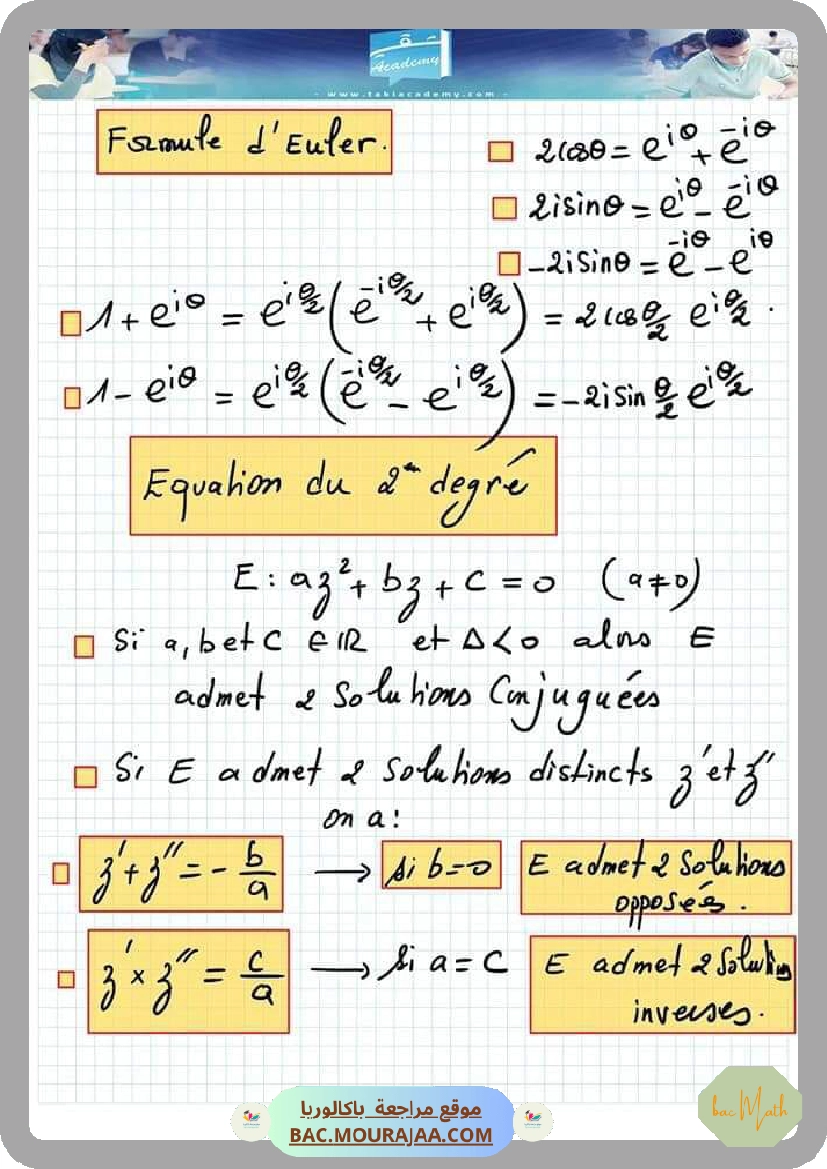 Academy
- www.takiacademy.com -
Formule d'Euler.
2cosθ = e^{iθ} + e^{-iθ}
2isinθ = e^{iθ} - e^{-iθ}
-2isinθ = e^{-iθ} - e^{iθ}
1 + e^{iθ} = e^{iθ/2} (e^{-iθ/2} + e^{iθ/2}) = 2cos θ/2 e^{iθ/2}.
1 - e^{iθ} = e^{iθ/2} (e^{-iθ/2} - e^{iθ/2}) = -2i sin θ/2 e^{iθ/2}
Equation du 2^{nd} degré
E : az² + bz + c = 0 (a ≠ 0)
Si a, b et c ∈ IR et Δ < 0 alors E
admet 2 solutions Conjuguées
Si E admet 2 solutions distincts z' et z''
on a :
z' + z'' = - b/a → si b = 0 E admet 2 solutions
opposés.
z' × z'' = c/a → si a = c E admet 2 solutions
inverses.
موقع مراجعة باكالوريا
BAC.MOURAJAA.COM
bac Math